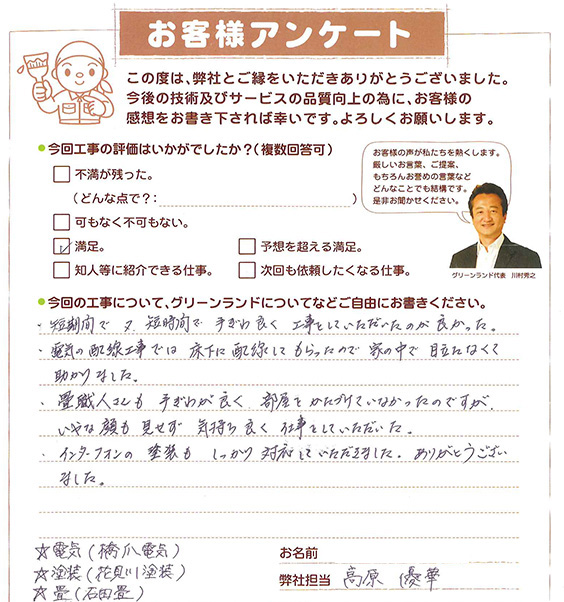 お客様アンケート
この度は、弊社とご縁をいただきありがとうございました。
今後の技術及びサービスの品質向上の為に、お客様の
感想をお書き下されば幸いです。よろしくお願いします。
●今回工事の評価はいかがでしたか?(複数回答可)
□不満が残った。
(どんな点で?: )
□可もなく不可もない。
☑満足。 □予想を超える満足。
□知人等に紹介できる仕事。 □次回も依頼したくなる仕事。
お客様の声が私たちを熱くします。
厳しいお言葉、ご提案、
もちろんお誉めの言葉など
どんなことでも結構です。
是非お聞かせください。
グリーンランド代表 川村秀之
●今回の工事について、グリーンランドについてなどご自由にお書きください。
・短期間で又 短時間で 手ぎわ良く 工事をしていただいたのが 良かった。
・電気の配線工事では 床下に配線して もらったので 家の中で 目立たなくて
助かりました。
・畳職人さんも 手ぎわが良く 部屋を かたづけていなかったのですが
いやな顔も見せず 気持ち良く 仕事をしていただいた。
・インターフォンの 塗装も しっかり 対応していただきました。ありがとうござい
ました。
☆電気(橋爪電気)
☆塗装(花見川塗装)
☆畳(石田畳)
お名前
弊社担当 高原 優華